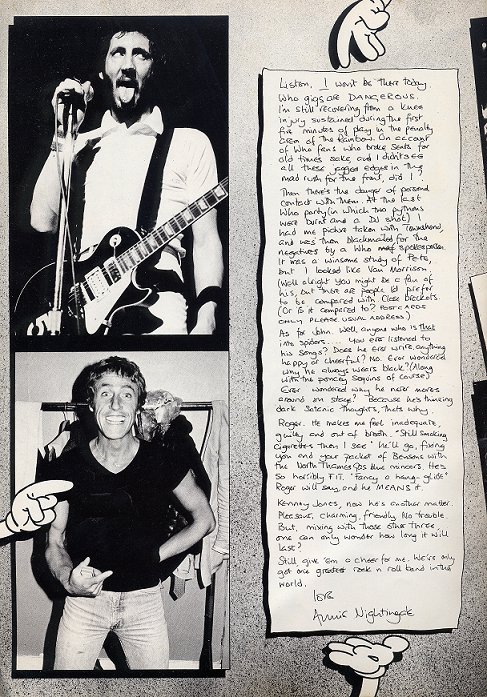 Listen, I won't be there today.
Who gigs are DANGEROUS.
I'm still recovering from a knee
injury sustained during the first
five minutes of play in the penalty
area of the Rainbow. On account
of Who fans who broke seats for
old times sake, and I didn't see
all these jagged edges in the
mad rush for the front, did I?
Then there's the danger of personal
contact with them. At the last
Who party (in which two pythons
were burnt and a DJ shot) I
had me picture taken with Townshend,
and was then blackmailed for the
negatives by a Who spokesperson.
It was a winsome study of Pete,
but I looked like Van Morrison.
(Well alright you might be a fan of
his, but there are people I'd prefer
to be compared with. Close brackets.
(Or is it compared to? POSTCARDS
ONLY PLEASE USUAL ADDRESS)
As for John. Well, anyone who is that
into spiders.... You ever listened to
his songs? Does he ever write anything
happy or cheerful? No. Ever wondered
why he always wears black? (Along
with the poncey sequins of course)
Ever wondered why he never moves
around on stage? Because he's thinking
dark Satanic thoughts, thats why.
Roger. He makes me feel inadequate,
guilty and out of breath. "Still smoking
cigarettes then I see" he'll go, fixing
you and your packet of Bensons with
the North Thames Gas blue mincers. Hes
so horribly FIT. "Fancy a hang-glide"
Roger will say, and he MEANS it.
Kenney Jones, now he's another matter.
Pleasant, charming, friendly. No trouble.
But, mixing with those other three
one can only wonder how long it will
last?
Still give 'em a cheer for me. We've only
got one greatest rock n roll band in the
world.
love
Annie Nightingale